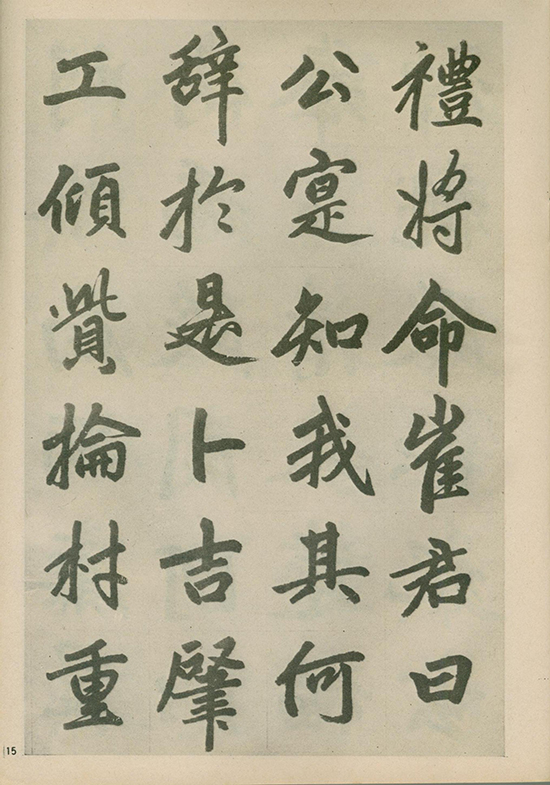 禮將命崔君曰
公寔知我其何
辭於是卜吉肇
工傾貲掄材重
15